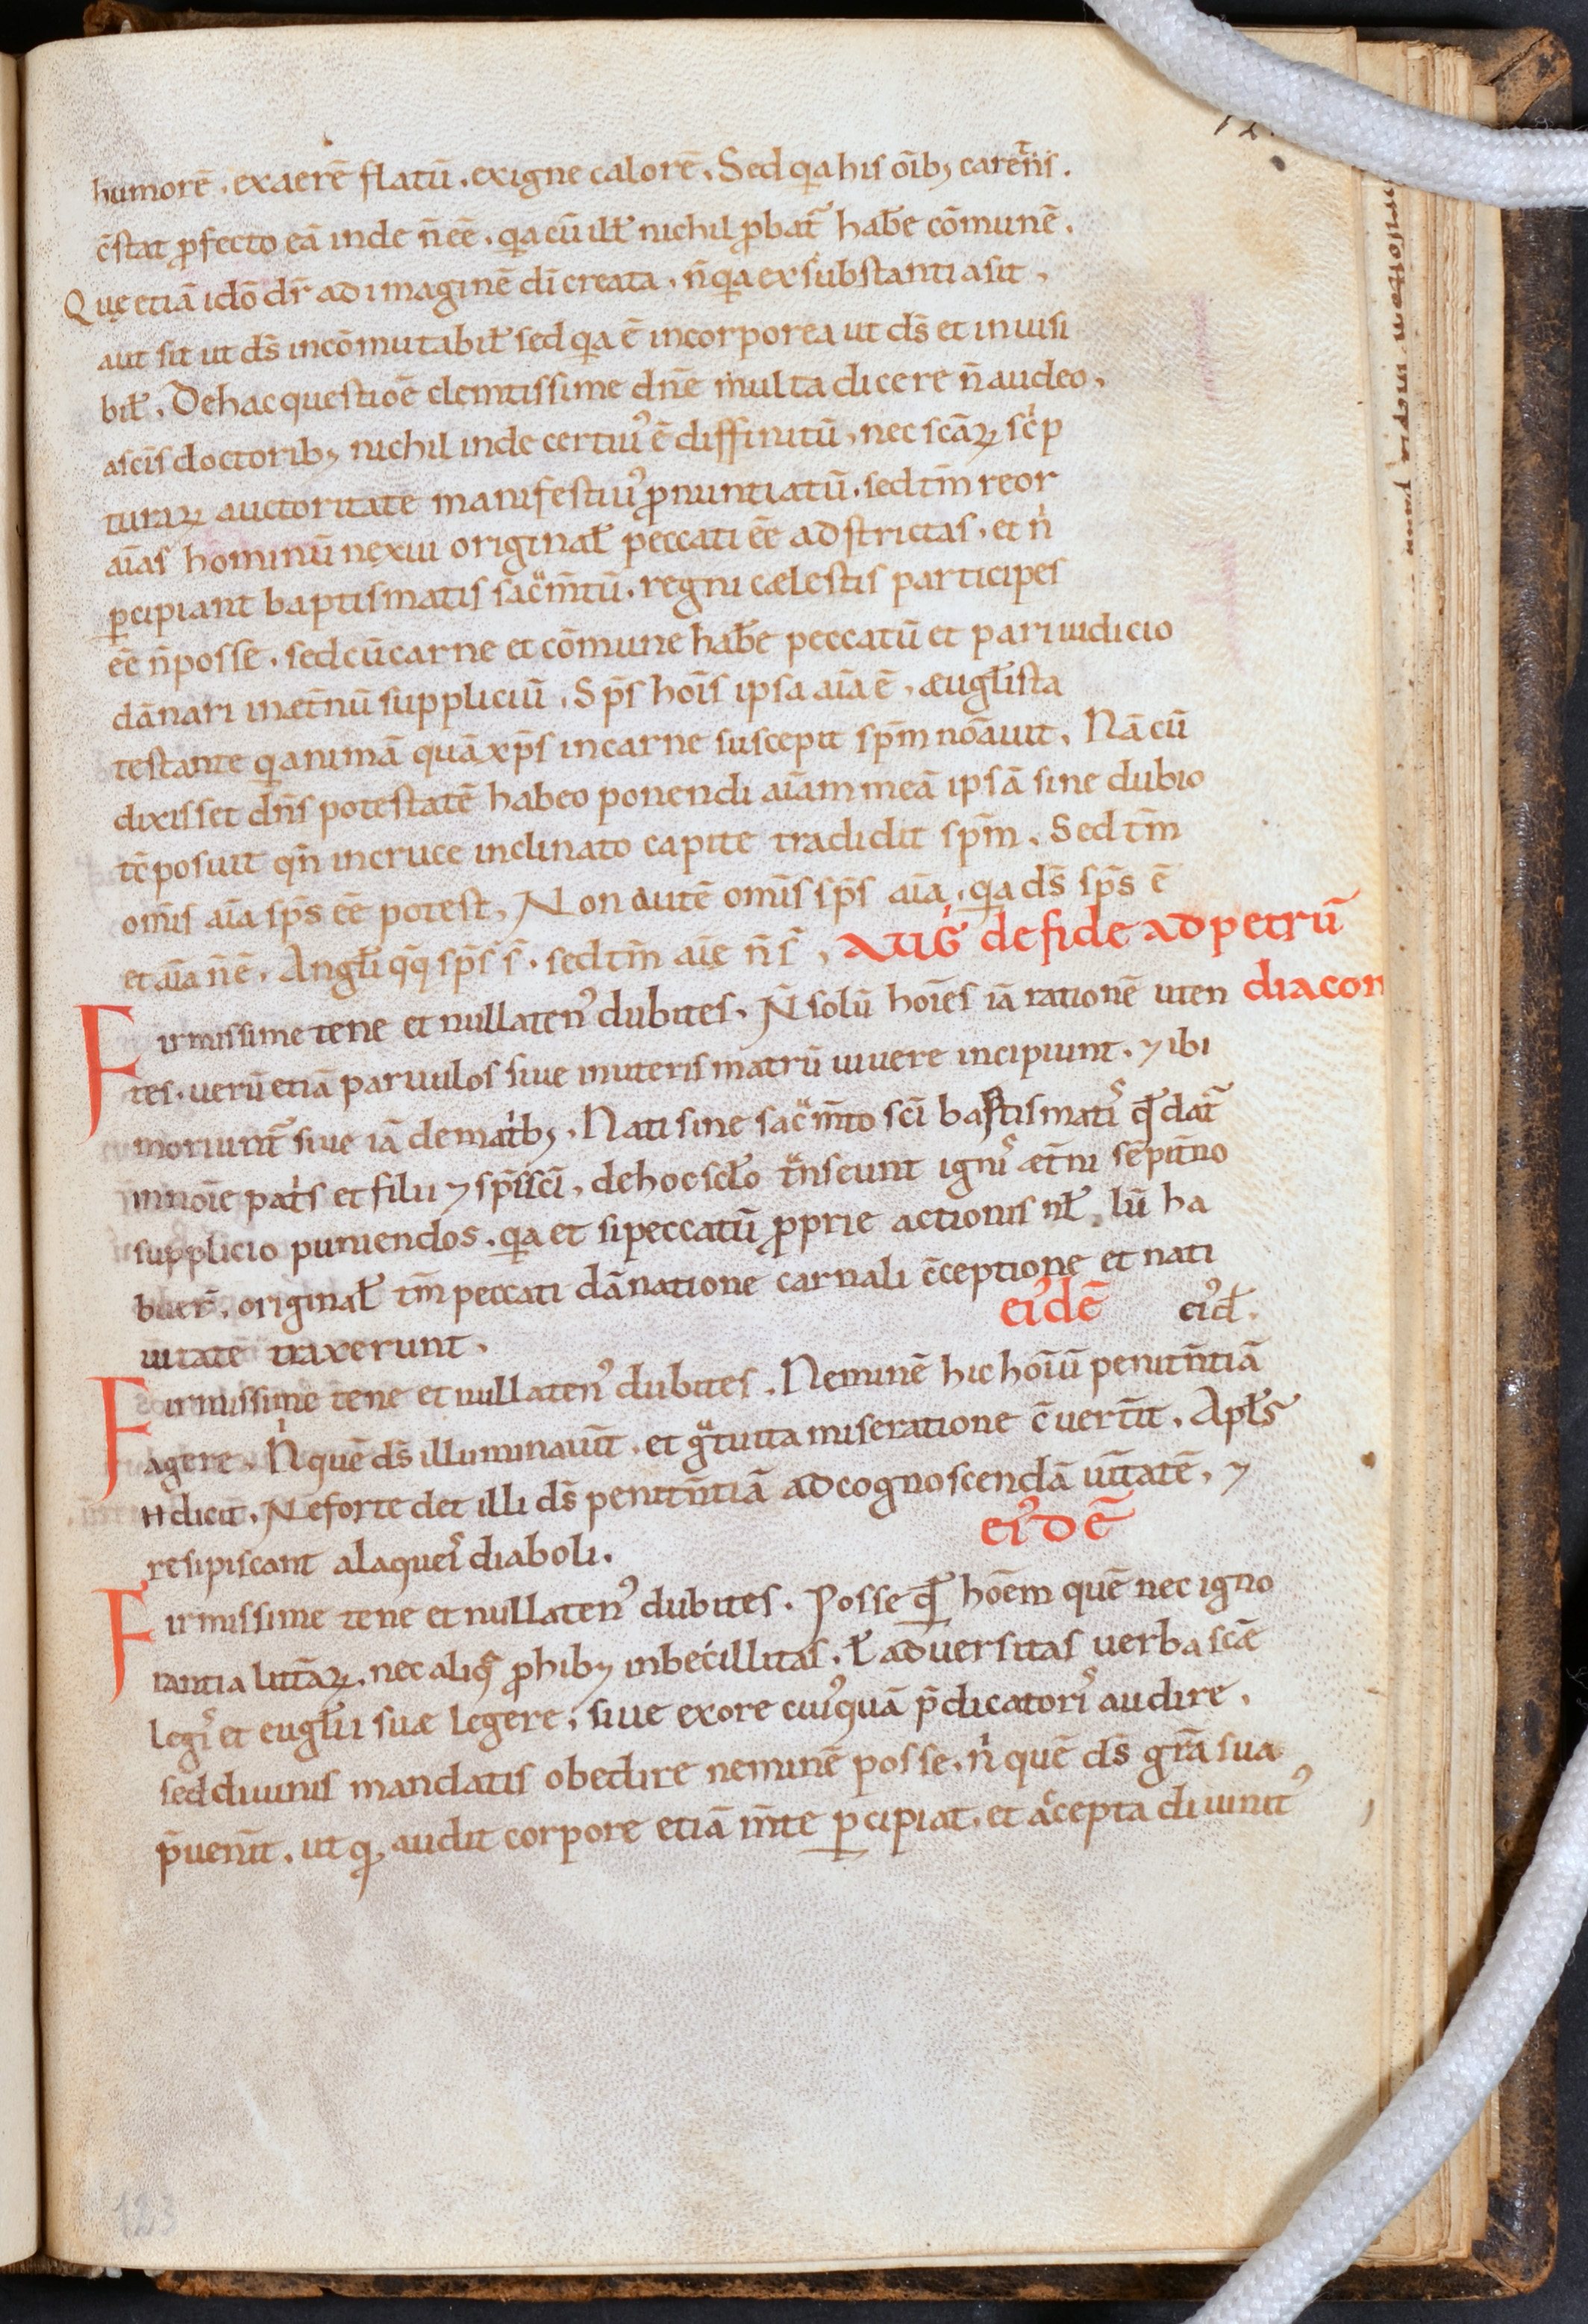 humorē. exaerē flatū. exigne calorē. Sed q̄a his oīb; carēns.
c̄stat ꝓfecto eā inde n̄ eē. q̄a cū illꝉ nichil ꝓbat̄ habꝉe cōmunē.
Quę etiā idō dr̄ ad imaginē dī creata. n̄ q̄a ex substantia sit,
aut sit ut ds̄ incōmutabilꝉ sed q̄a ē incorporea ut ds̄ et inuisi
bilꝉ. De hac questiōe clem̄tissime dn̄e multa dicere n̄ audeo,
a sc̄is doctorib; nichil inde certiuꝰ ē diffinitū, nec scāꝝ sc̓p
turaꝝ auctoritate manifestiuꝰ ꝓnuntiatū. sed tm̄ reor
aīas hominū nexui originalꝉ peccati eē adstrictas. et n̓
ꝑcipiant baptismatis sac̄m̄tū. regni cælestis participes
eē n̄ posse. sed cū carne et cōmune habꝉe peccatū et pari iudicio
dānari in æt̄nū suppliciū. Sp̄s hoīs ipsa aīa ē, æuglꝉista
testante q̓ animā quā xp̄s in carne suscepit sp̄m nōauit. Nā cū
dixisset dn̄s potestatē habeo ponendi aīam meā ipsā sine dubio
tc̄ posuit qn̄ in cruce inclinato capite tradidit sp̄m. Sed tm̄
om̄is aīa sp̄s eē potest, Non autē om̄is sp̄s aīa. q̄a ds̄ sp̄s ē
et aīa n̄ ē. Anglꝉi q̄q̄ sp̄s s̄. sed tm̄ aīę n̄ s̄, AUG̓ de fide ad petrū
Firmissime tene et nullatenꝰ dubites. N̄ solū hoīes iā rationē uten diacon
tes. uerū etiā paruulos siue in uteris matrū uiuere incipiunt. ⁊ ibi
moriunt̄ siue iā de matrib; Nati sine sac̄m̄to sc̄i baptismatis qđ dat̄
in noīe patris et filii ⁊ sp̄s sc̄i, de hoc sclꝉo t̄nseunt ignis æt̄ni sēpit̄no
supplicio puniendos. q̄a et si peccatū ꝓprie actionis nłlū ha
buer̄. originalꝉ tm̄ peccati dānatione carnali c̄ceptione et nati
uitate traxerunt. eiꝰdē eiꝰd̄.
Firmissime tene et nullatenꝰ dubites. Neminē hic hoīū penit̄ntiā
agere. N̓ quē ds̄ illuminauit. et g̓tuita miseratione c̄uert̄it. Aplꝉs
n̄ dicit. Ne forte det illi ds̄ penit̄ntiā ad cognoscendā uīt̄atē. ⁊
resipiscant a laqueis diaboli. eiꝰdē
Firmissime tene et nullatenꝰ dubites. Posse qđ hoēm quē nec igno
rantia litt̄aꝝ. nec aliq̄ ꝓhib; inbecillitas. ꝉ aduersitas uerba scǣ
legis et euglꝉii suæ legere; siue ex ore cuiꝰquā p̄dicatoris audire.
sed diuinis mandatis obedire neminē posse. n̓ quē ds̄ gr̄a sua
p̄uen̄it. ut q̓ audit corpore etiā m̄te ꝑcipiat. et accepta diuinitꝰ
123